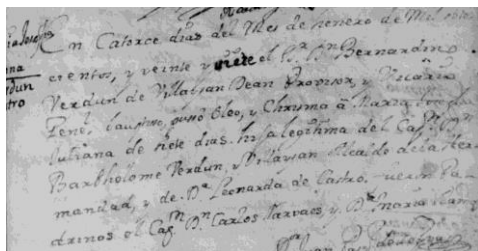 En Catorce dias del Mes de henero de Mil sete
cientos, y veinte y siete el Sr. Dn Bernardino
Verdun de Villaysan Dean Provisor, y Vicario
Genl, bautiso, puso Oleo, y Chrisma â Maria
Juliana de siete dias hija legitima del Capn Dn
Bartholome Verdun, y Villaysan Alcalde de la Her
manidad, y de Da Leonarda de Castro, fueron Pa
drinos el Capn Dn Carlos Narvaes, y Da Maria